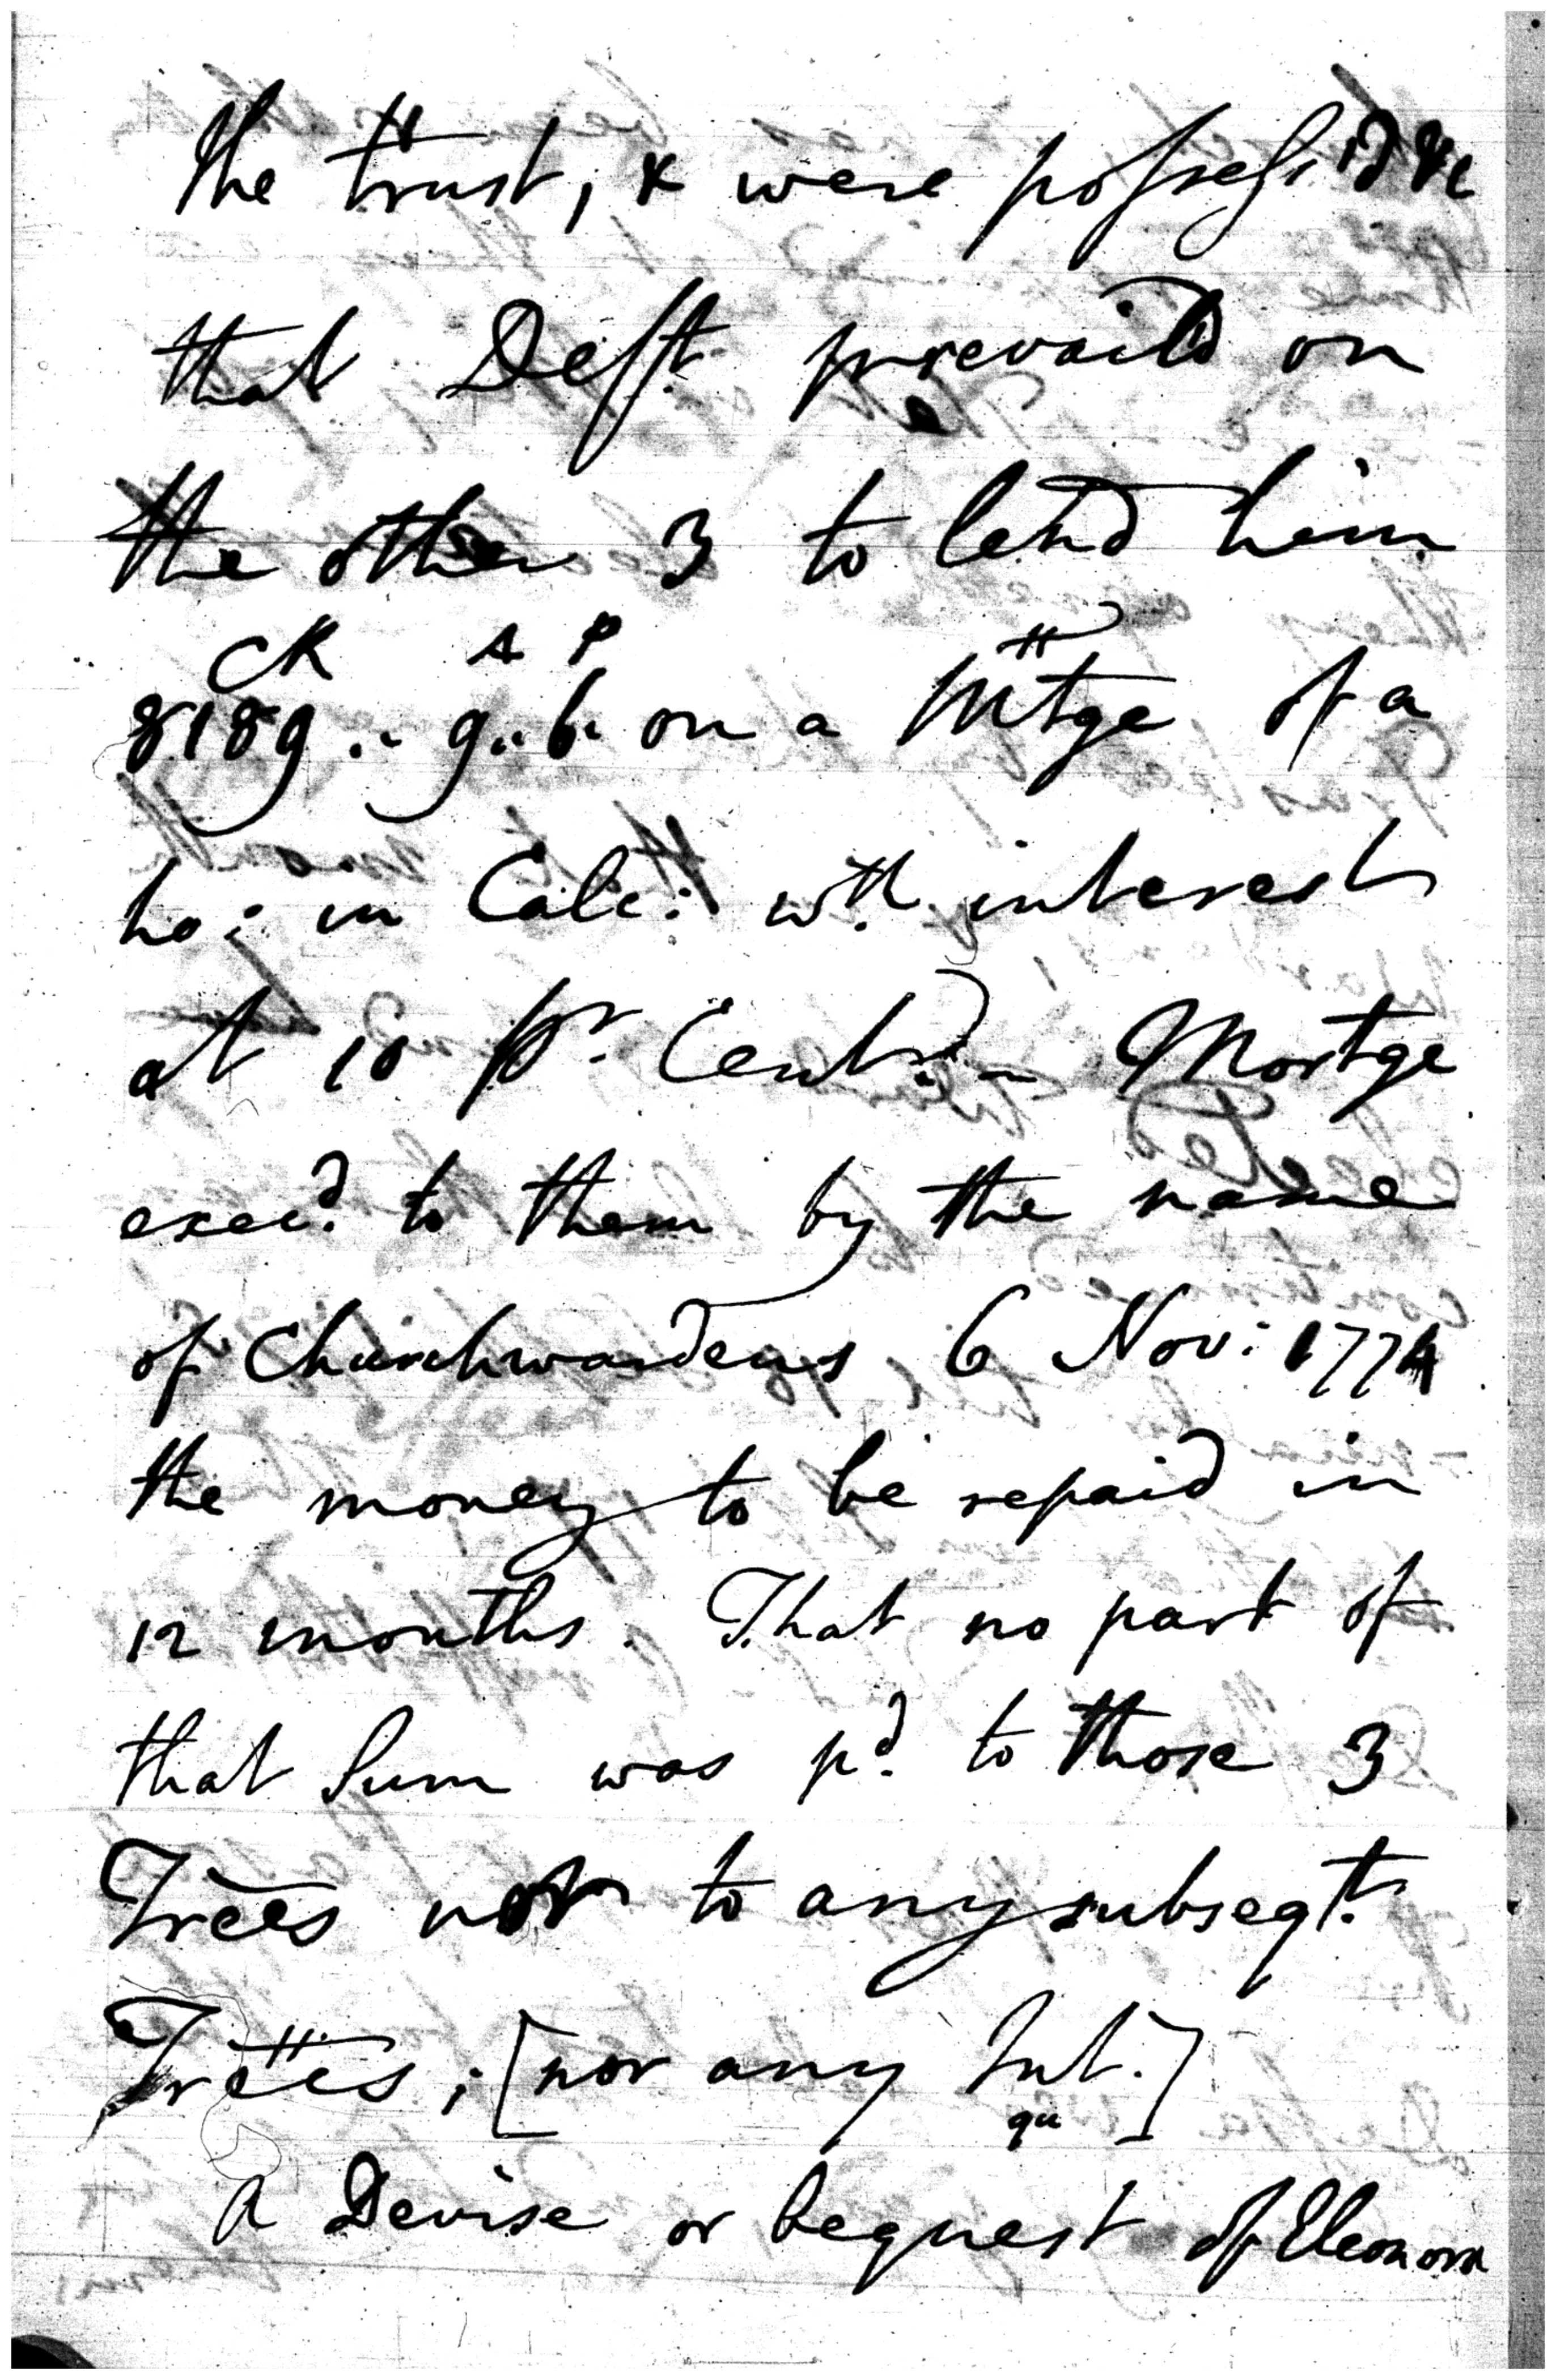 the trust, & were possess'd &c
that Deft. prevail'd on
the other 3 to lend him
CR A P
8189 .. 9 .. 6. on a Mtge of a
ho: in Calc: wth. interest
at 10 pr. Cent. Mortge
execd. to them by the name
of Churchwardens 6 Nov: 1774
the money to be repaid in
12 months. That no part of
that Sum was pd. to those 3
Trees nor to any subseqt.
Trees; [nor any Int.]
qu
A Devise or bequest of Eleonora